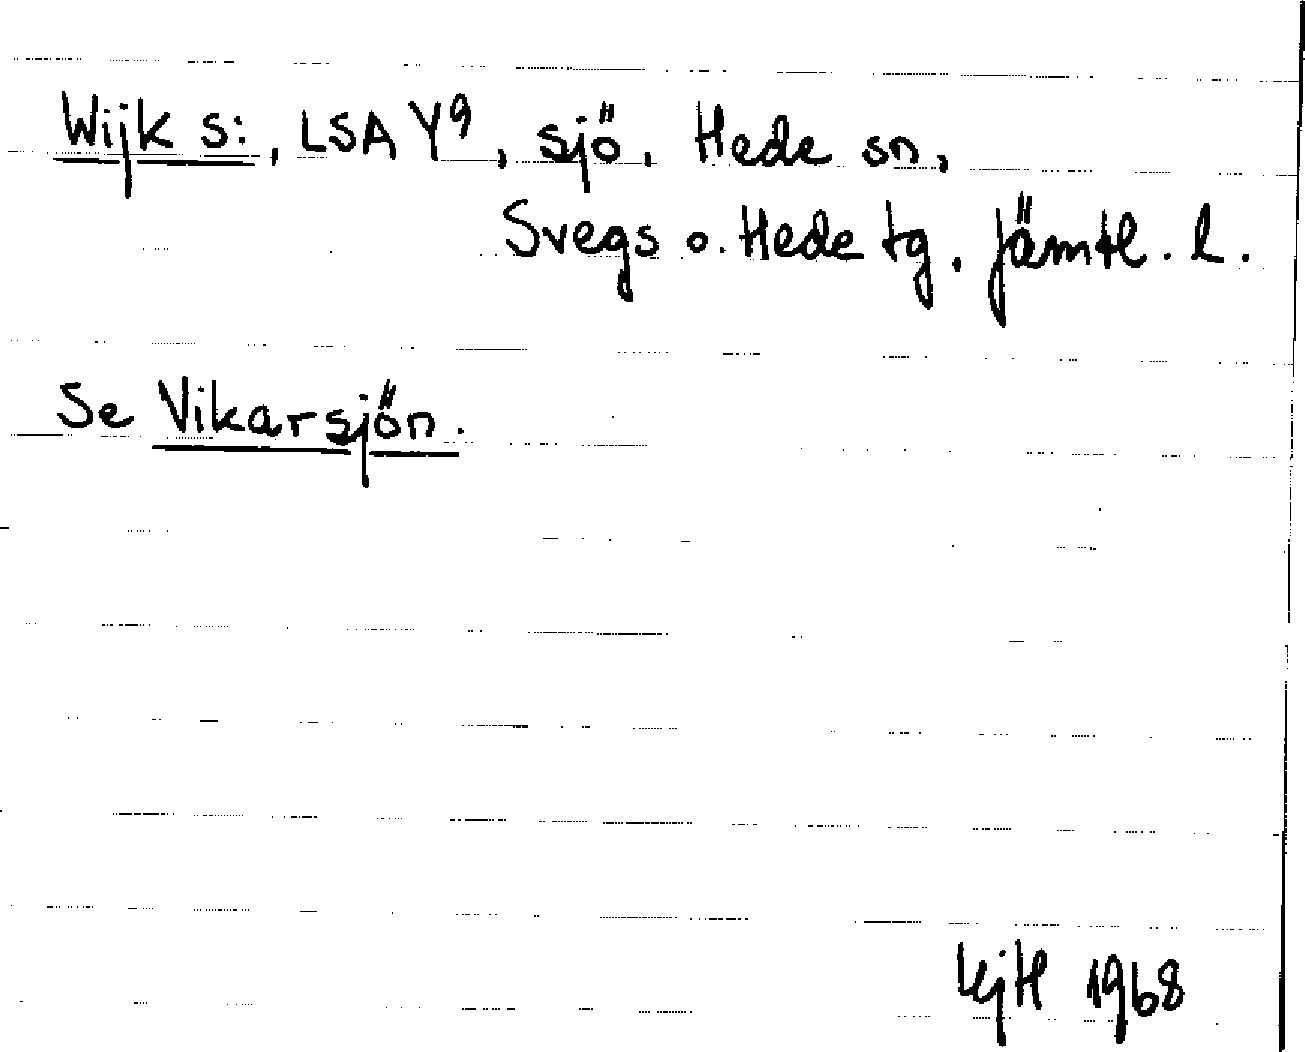 Wijk s:, LSA Y9, sjö. Hede sn,
Svegs o. Hede tg. Jämtl. l.
Se Vikarsjön.
1968